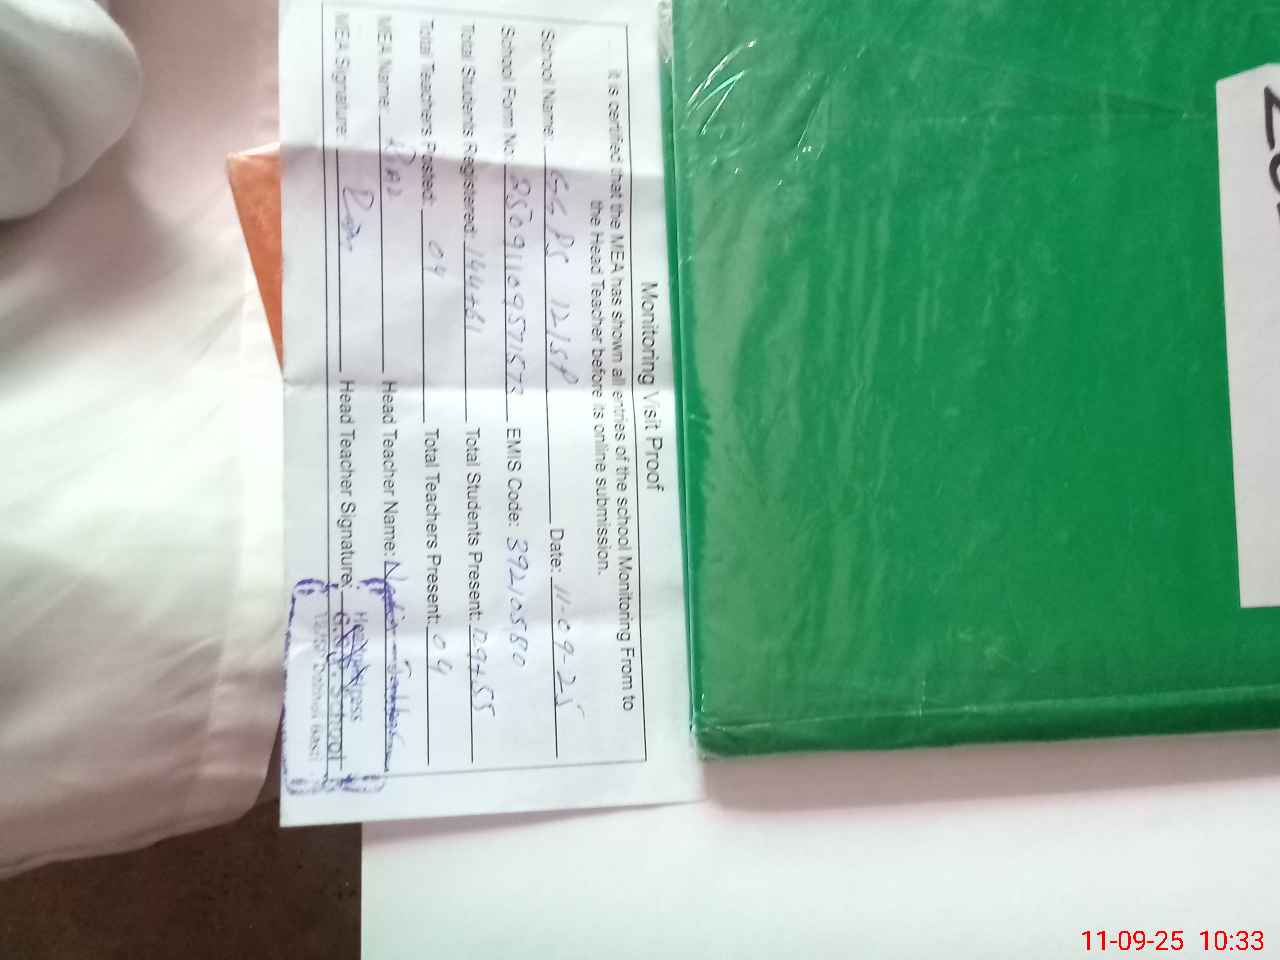 Monitoring Visit Proof
It is certified that the MEA has shown all entries of the school Monitoring From to
the Head Teacher before its online submission.
School Name: GGPS 12/SP Date: 11-09-25
School Form No: EMIS Code: 39210580
Total Students Registered: 144+81 Total Students Present: +55
Total Teachers Posted: 04 Total Teachers Present: 04
MEA Name: Head Teacher Name:
MEA Signature: Head Teacher Signature:
11-09-25 10:33